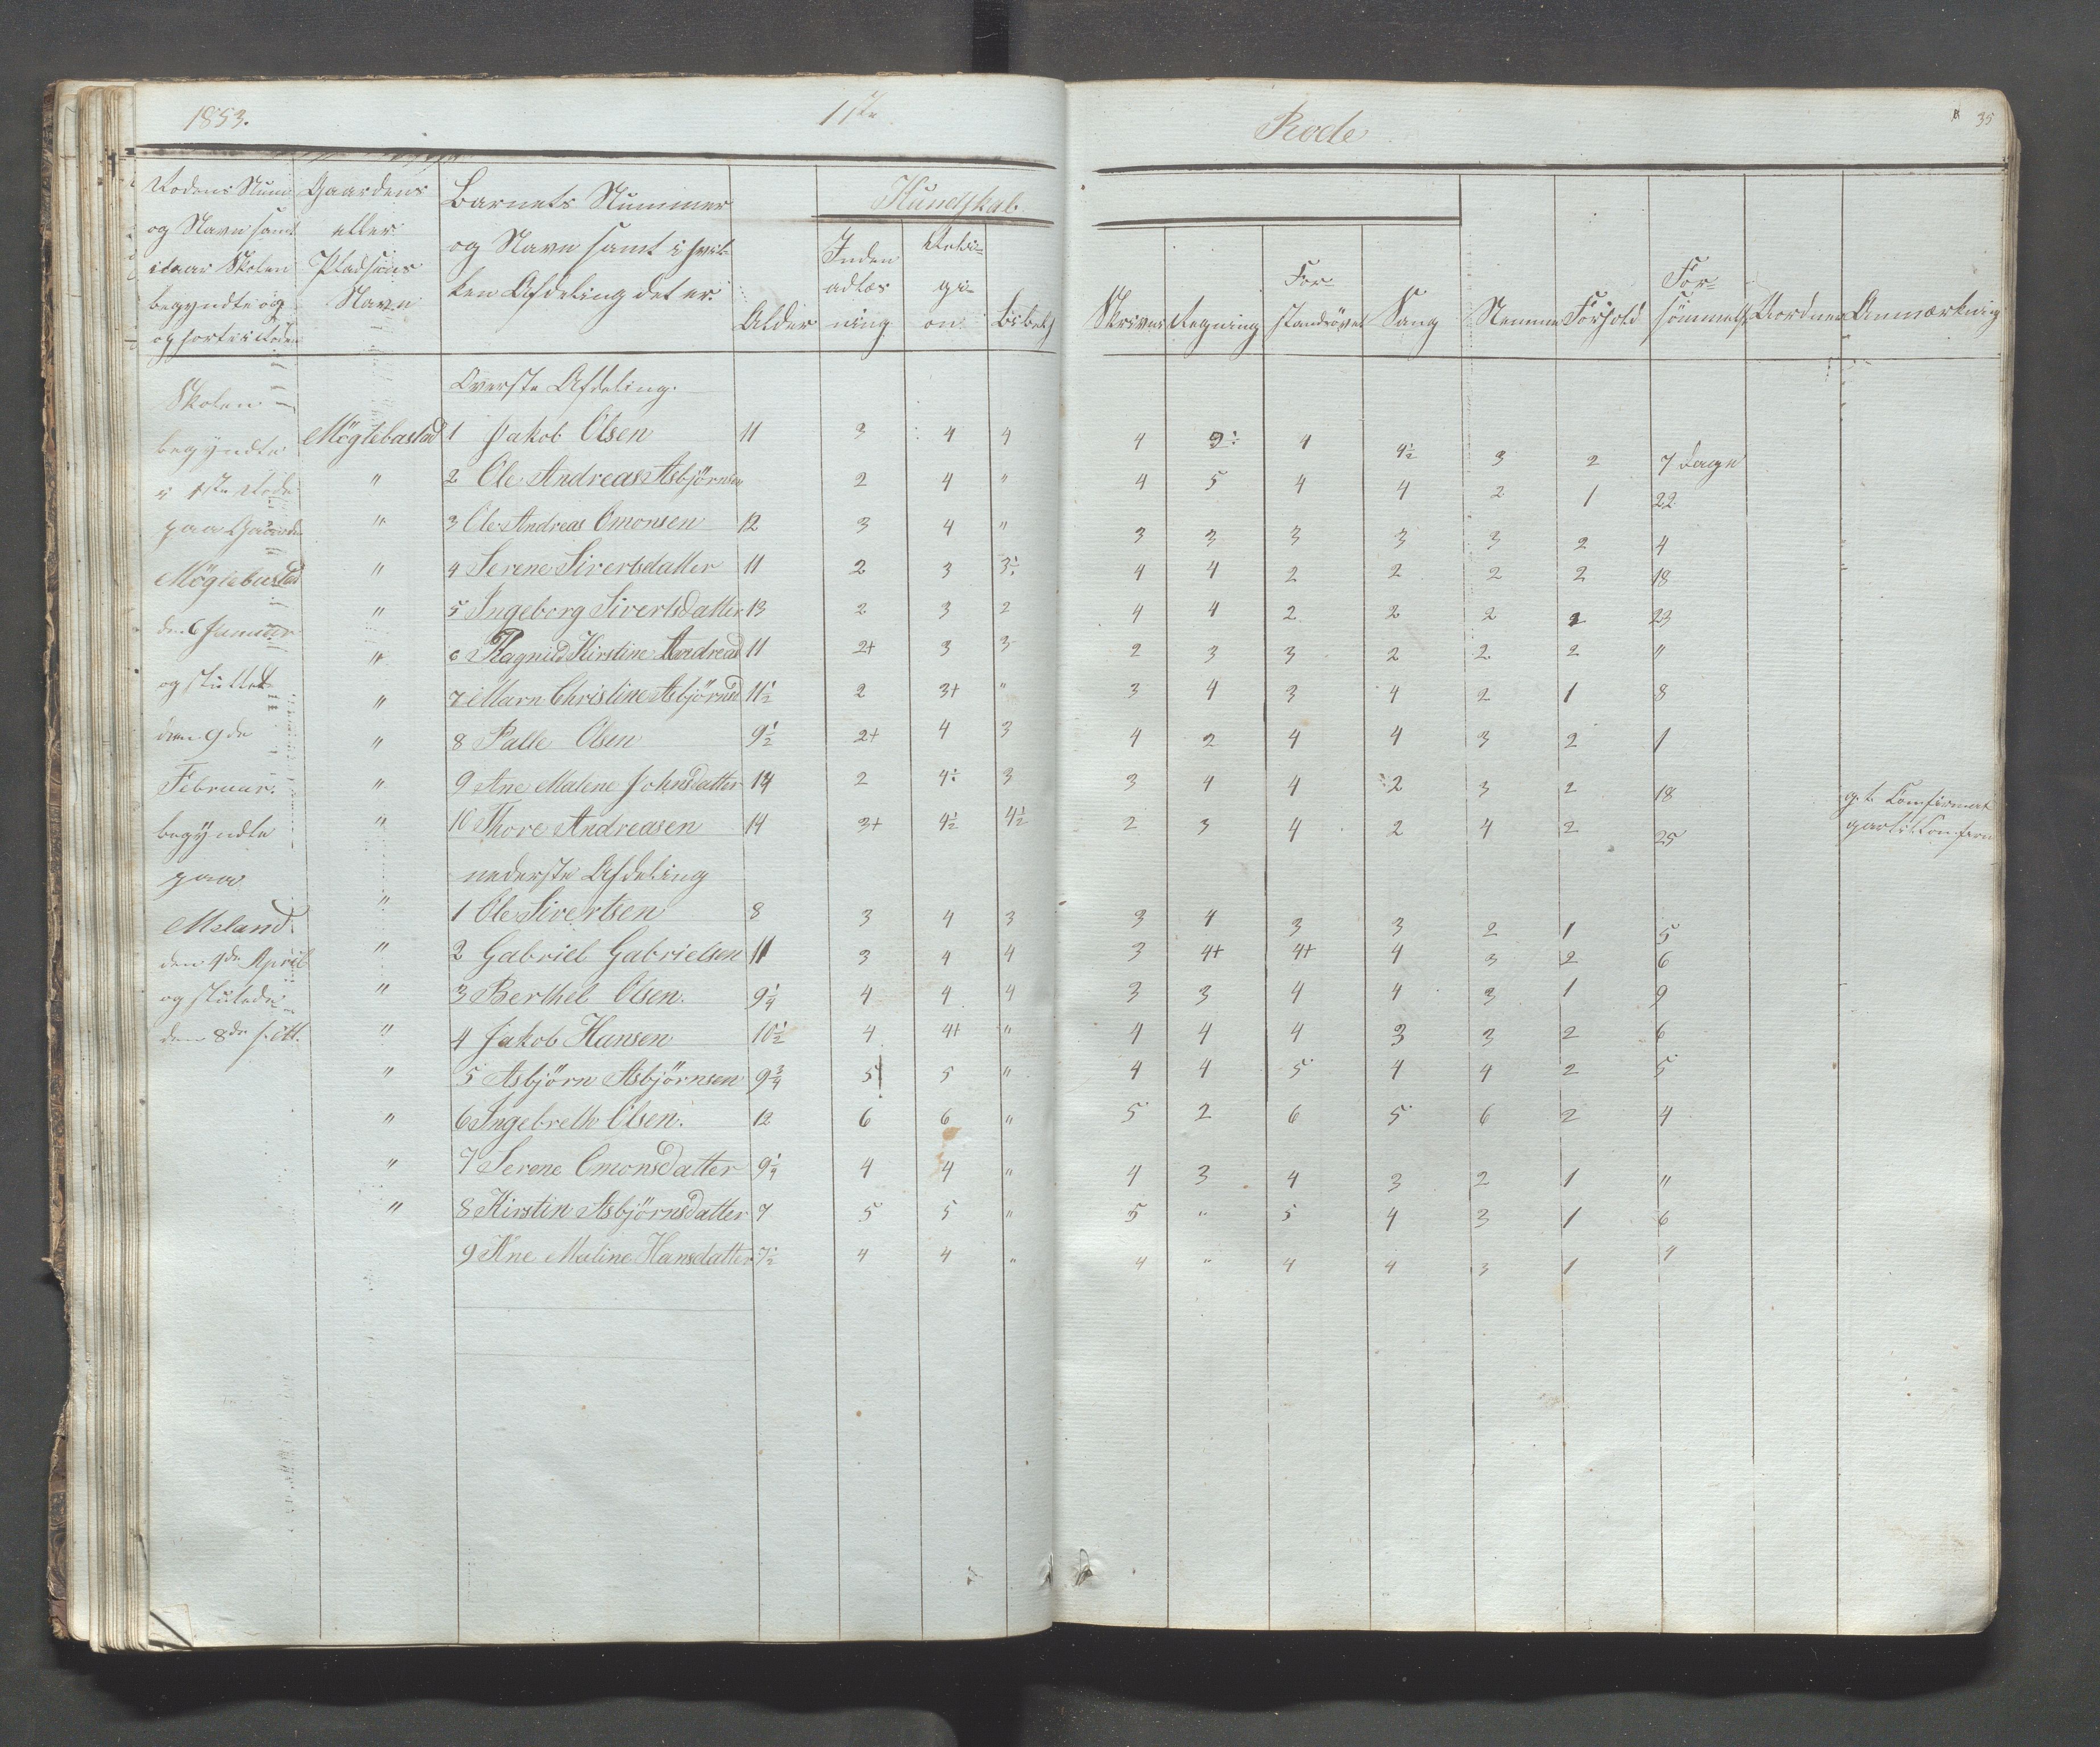 1853. 1ste Rode 35
Rodens Num. Gaardens Barnets Nummer Kundskab
og Navn samt eller og Navn samt i hvil-
naar Skolen Pladsens ken Afdeling det er.
begyndte og Navn
Alder Inden adlæs ning Reli- gi- on Bibelh Skriver Regning For- standsøvel Sang Nemme Forhold For- sømmels Uorden Anmærkning
Øverste Afdeling.
Skolen
begyndte
i 1ste Rode
paa Gaarden
Möglebustad
den 6 Januar
og sluttet
den 9de
Februar.
begyndte
paa
Meland
den 1de April
og slutede
den 8de
Möglebustad 1 Jakob Olsen 11 3 4 4 4 3÷ 4 4½ 3 2 7 Dage
" 2 Ole Andreas Asbjörnsen 2 4 " 4 5 4 4 2 1 22
" 3 Ole Andreas Omonsen 12 3 4 " 3 3 3 3 3 2 4
" 4 Serene Sivertsdatter 11 2 3 3÷ 4 4 2 2 2 2 18
" 5 Ingeborg Sivertsdatter 13 2 3 2 4 4 2 2 2 2 23
" 6 Ragnild Kirstine Andreasd 11 2+ 3 3 2 3 3 2 2 2 "
" 7 Marn Christine Asbjörnsd 11½ 2 3+ " 3 4 3 4 2 1 8
" 8 Palle Olsen 9½ 2+ 4 3 4 2 4 4 3 2 1
" 9 Ane Malene Johnsdatter 14 2 4÷ 3 3 4 4 2 3 2 18
" 10 Thore Andreasen 14 3+ 4½ 4½ 2 3 4 2 4 2 25
nederste Afdeling
" 1 Ole Sivertsen 8 3 4 3 3 4 3 3 2 1 5
" 2 Gabriel Gabrielsen 11 3 4 4 3 4+ 4+ 4 3 2 6
" 3 Berthel Olsen. 9¼ 4 4 4 3 3 4 4 3 1 9
" 4 Jakob Hansen 10½ 4 4+ " 4 4 4 3 3 2 6
" 5 Asbjörn Asbjörnsen 9¾ 5 5 " 4 4 5 4 4 2 5
" 6 Ingebreth Olsen. 12 6 6 " 5 2 6 5 6 2 4
" 7 Serene Omonsdatter 9¼ 4 4 " 4 3 4 3 2 1 "
" 8 Kirstin Asbjörnsdatter 7 5 5 " 5 " 5 4 3 1 6
9 Ane Maline Hansdatter 7½ 4 4 " 4 " 4 4 3 1 4